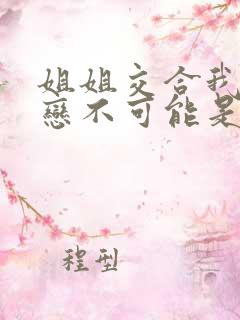 姐姐交合我
戀不可能是
程型